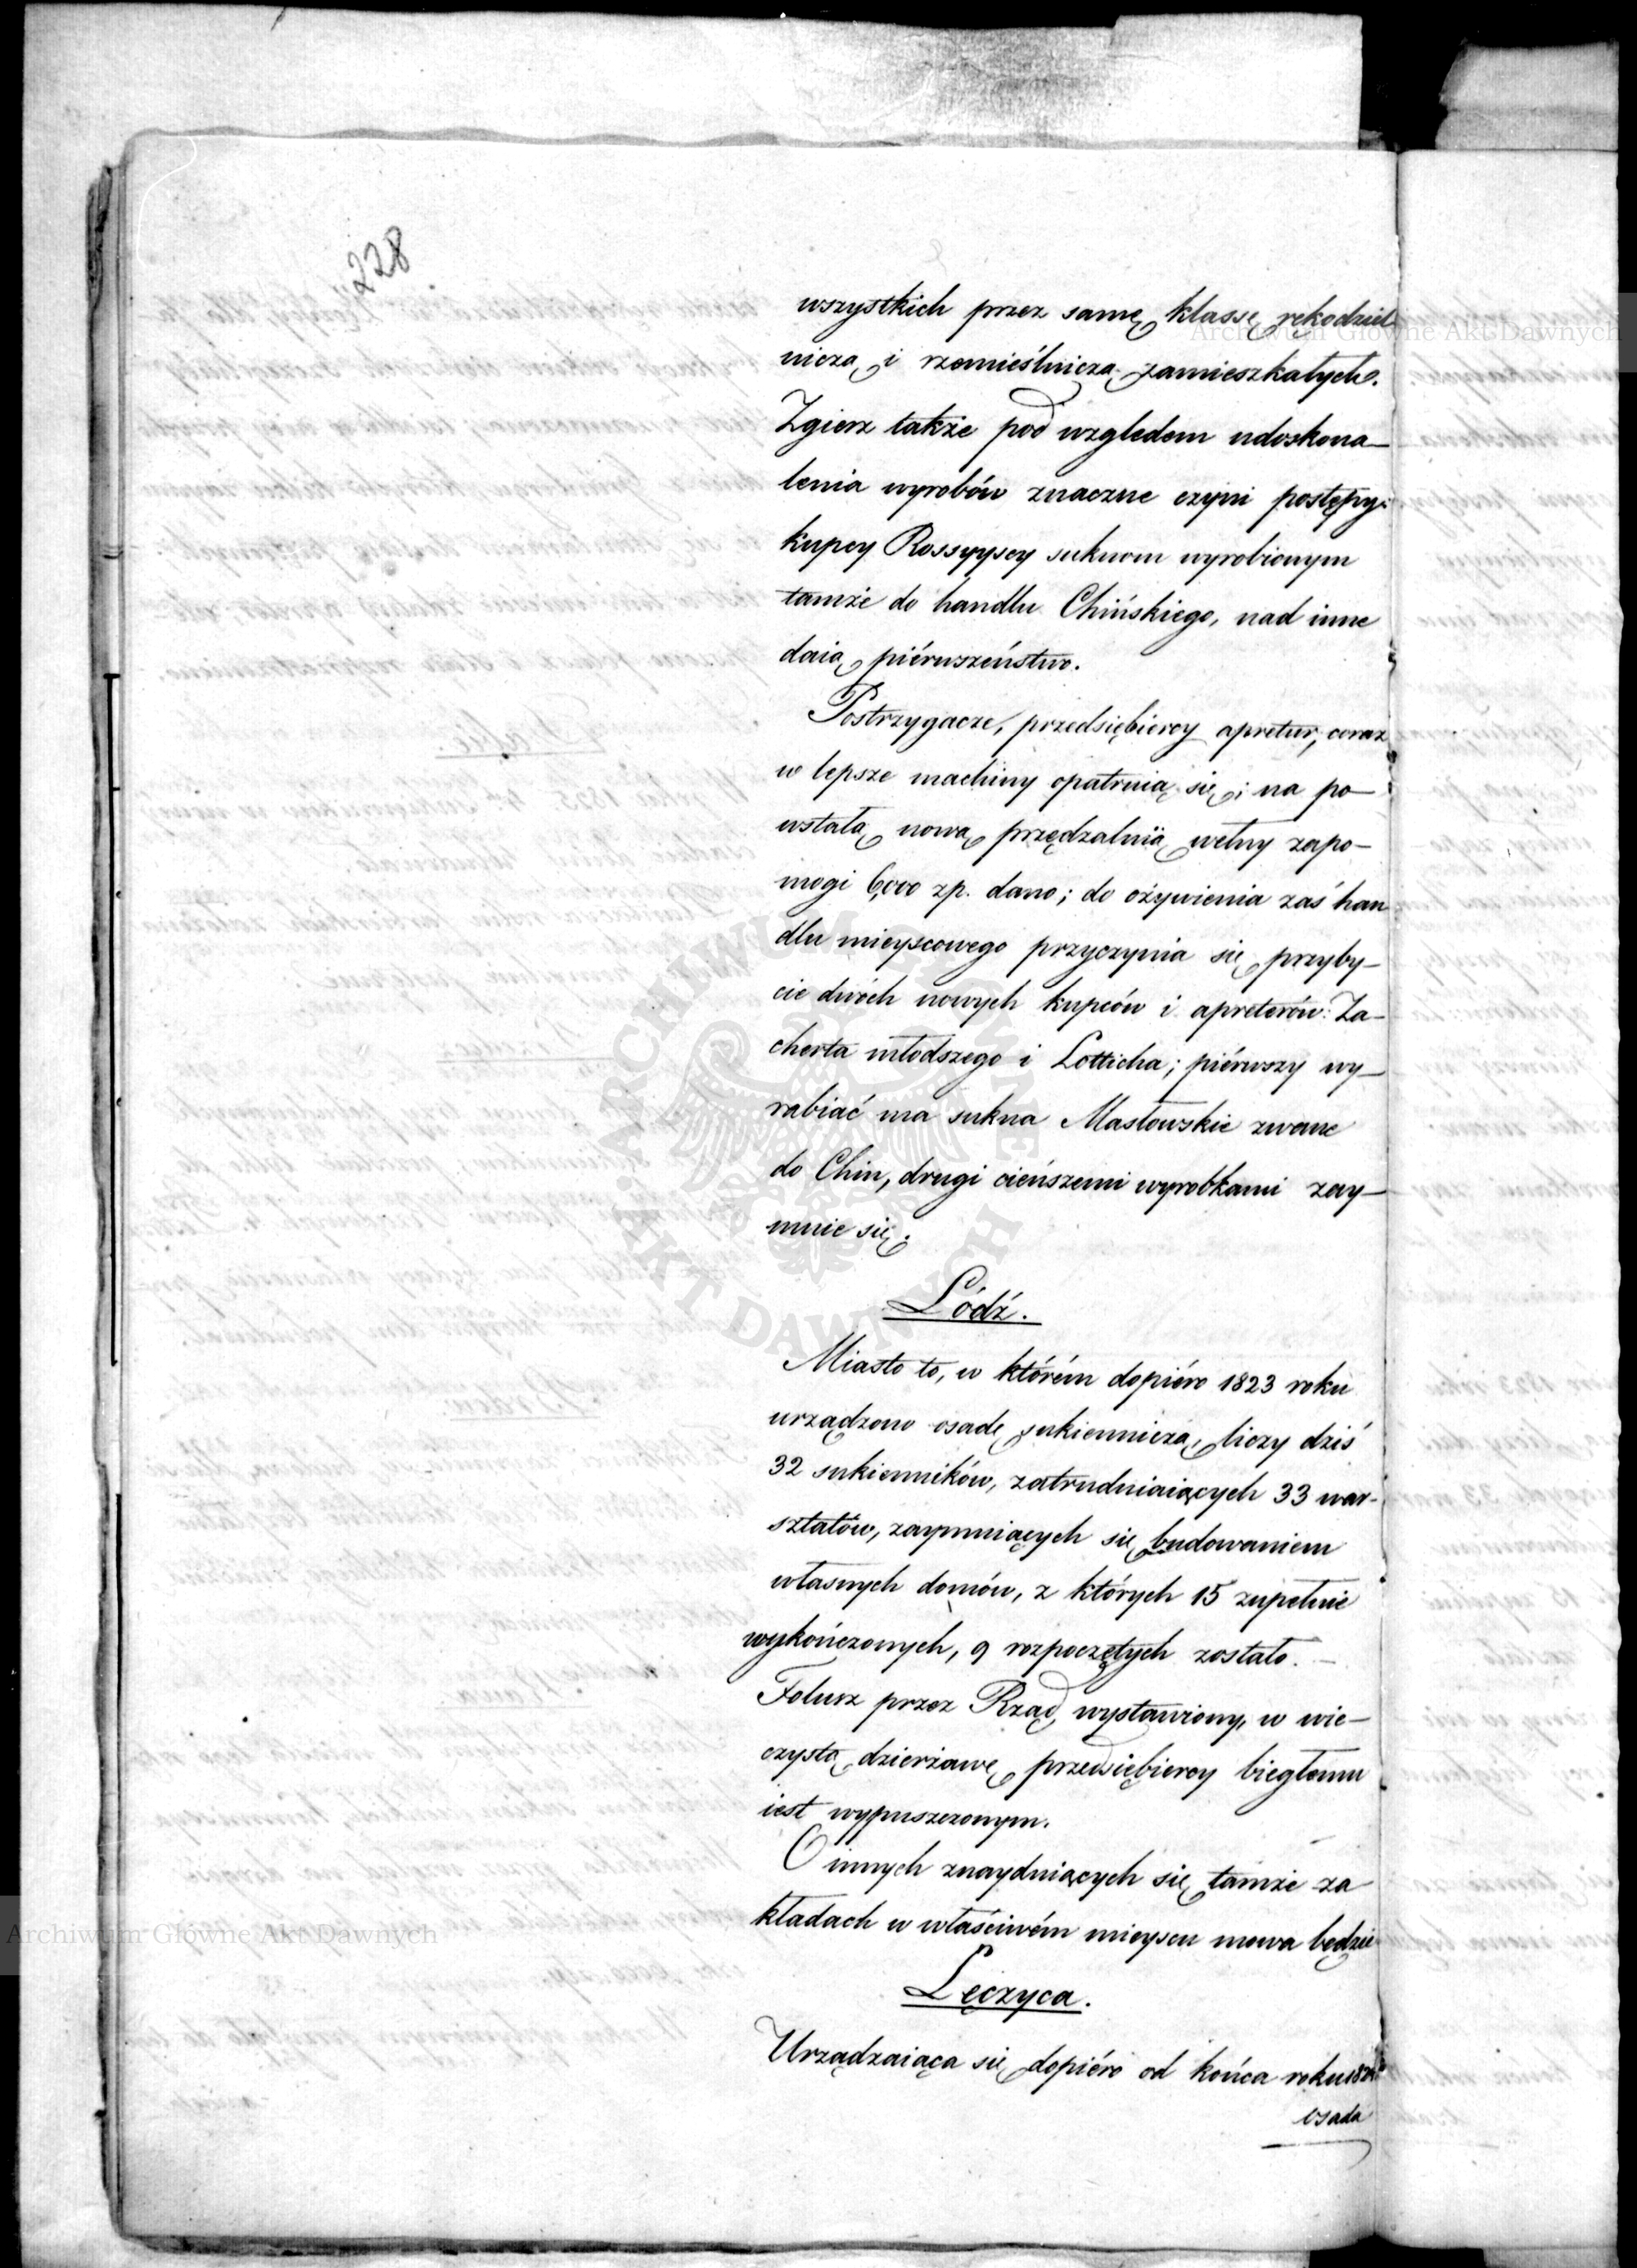 228
wszystkich przez samę klassę rękodziel
niczą i rzemieślniczą zamieszkałych.
Zgierz także pod względem udoskona—
lenia wyrobów znaczne czyni postępy:
kupcy Rossyyscy suknom wyrobionym
tamże do handlu Chińskiego, nad inne
daią piérwszeństwo.
Postrzygacze, przedsiębiercy apretur, coraz
w lepsze machiny opatruią się; na po—
wstałą nową przędzalnią wełny zapo—
mogi 6,000 zp. dano; do ożywienia zaś han
dlu mieyscowego przyczynia się przyby—
cie dwóch nowych kupców i apreterów: Za—
cherta młodszego i Lotticha; piérwszy wy—
rabiać ma sukna Masłowskie zwane
do Chin, drugi cieńszemi wyrobkami zay—
mnie się.
Łódź.
Miasto to, w którém dopiéro 1823 roku
urządzono osadę sukienniczą, liczy dziś
32 sukienników, zatrudniaiących 33 war-
sztatów, zaymuiących się budowaniem
własnych domów, z których 15 zupełnie
wykończonych, 9 rozpoczętych zostało. —
Folusz przez Rząd wystawiony, w wie—
czystą dzierżawę przedsiębiercy biegłemu
iest wypuszczonym.
O innych znayduiących się tamże za
kładach w właściwém mieyscu mowa będzie
Łęczyca.
Urządzaiąca się dopiéro od końca roku
osada
Archiwum Główne Akt Dawnych
Archiwum Główne Akt Dawnych
ARCHIWUM GŁÓWNE AKT DAWNYCH